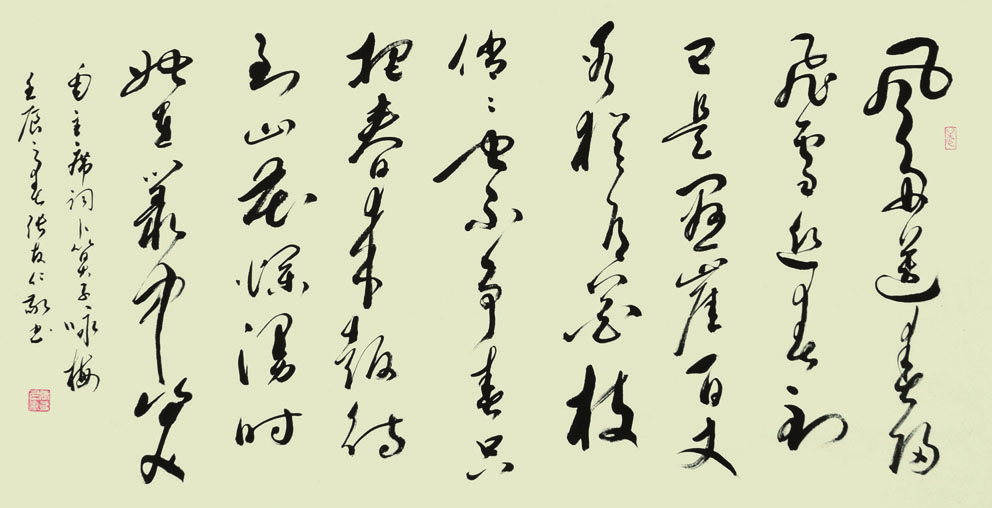 風雨送春歸
飛雪迎春到
已是懸崖百丈
冰猶有花枝
俏〻也不爭春只
把春來報待
到山花爛漫时
她在叢中笑
毛主席詞卜算子咏梅
壬辰之春張友仁敬书